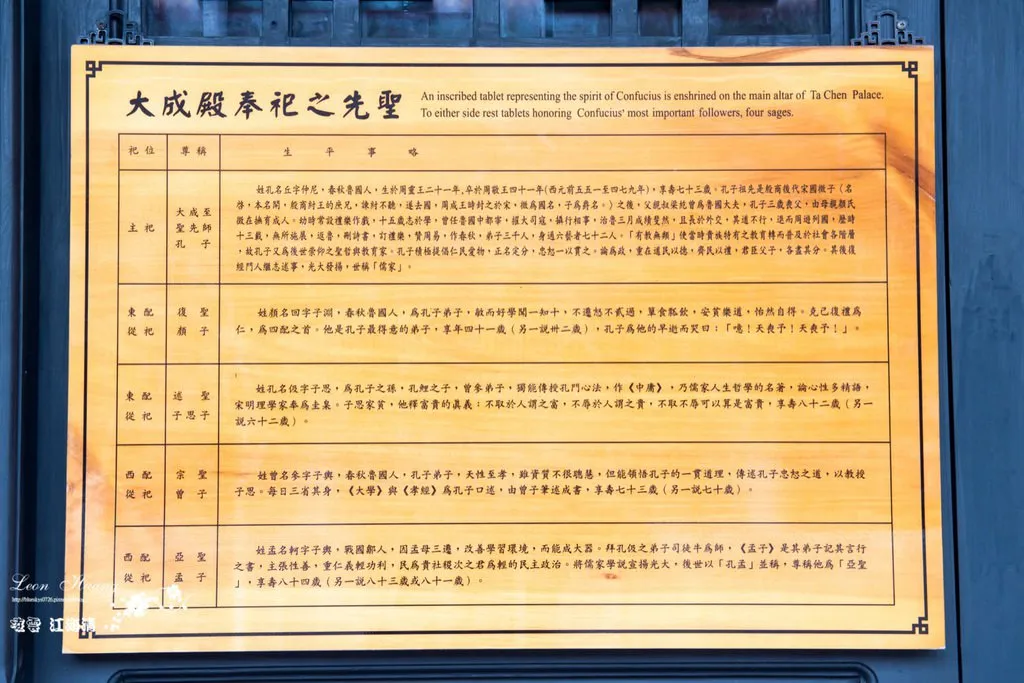 大成殿奉祀之先聖
An inscribed tablet representing the spirit of Confucius is enshrined on the main altar of Ta Chen Palace.
To either side rest tablets honoring Confucius' most important followers, four sages.
祀位 尊稱 生平事略
主祀
大成至
聖先師
孔子
姓孔名丘字仲尼,春秋魯國人,生於周靈王二十一年,卒於周敬王四十一年(西元前五五一至四七九年),享壽七十三歲。孔子祖先是殷商後代宋國微子(名
啓,本名開,殷商紂王的庶兄,諫紂不聽,遂去國,周成王時封之於宋,微為國名,子為爵名。)之後,父親叔梁紇曾為魯國大夫,孔子三歲喪父,由母親顏氏
徵在撫育成人。幼時常設禮樂作戲,十五歲志於學,曾任魯國中都宰,擢大司寇,攝行相事,治魯三月成績斐然,且長於外交,其道不行,退而周遊列國,歷時
十三載,無所施展,返魯,刪詩書,訂禮樂,贊周易,作春秋,弟子三千人,身通六藝者七十二人。「有教無類」使當時貴族特有之教育轉而普及於社會各階層
,故孔子又為後世景仰之聖哲與教育家。孔子積極提倡仁民愛物,正名定分,忠恕一以貫之。論為政,重在道民以德,齊民以禮,君臣父子,各盡其分。其後復
經門人繼志述事,光大發揚,世稱「儒家」。
東配
從祀
復聖
顏子
姓顏名回字子淵,春秋魯國人,為孔子弟子,敏而好學聞一知十,不遷怒不貳過,簞食瓢飲,安貧樂道,怡然自得。克己復禮為
仁,為四配之首。他是孔子最得意的弟子,享年四十一歲(另一說卅二歲),孔子為他的早逝而哭曰:「噫!天喪予!天喪予!」。
東配
從祀
述聖
子思子
姓孔名伋字子思,為孔子之孫,孔鯉之子,曾參弟子,獨能傳授孔門心法,作《中庸》,乃儒家人生哲學的名著,論心性多精語,
宋明理學家奉為圭臬。子思家貧,他釋富貴的真義:不取於人謂之富,不辱於人謂之貴,不取不辱可以算是富貴,享壽八十二歲(另一
說六十二歲)。
西配
從祀
宗聖
曾子
姓曾名參字子輿,春秋魯國人,孔子弟子,天性至孝,雖資質不很聰慧,但能領悟孔子的一貫道理,傳述孔子忠恕之道,以教授
子思。每日三省其身,《大學》與《孝經》為孔子口述,由曾子筆述成書,享壽七十三歲(另一說七十歲)。
西配
從祀
亞聖
孟子
姓孟名軻字子輿,戰國鄒人,因孟母三遷,改善學習環境,而能成大器。拜孔伋之弟子司徒牛為師,《孟子》是其弟子記其言行
之書,主張性善,重仁義輕功利,民為貴社稷次之君為輕的民主政治。將儒家學說宣揚光大,後世以「孔孟」並稱,尊稱他為「亞聖
」,享壽八十四歲(另一說八十三歲或八十一歲)。
Leon